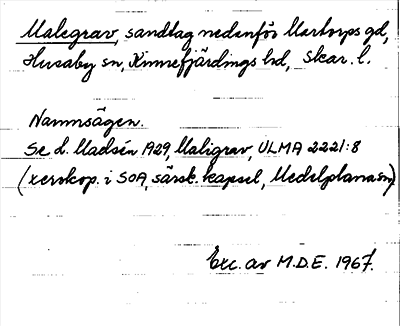 Malegrav, sandtag nedanför Martorps gd,
Husaby sn, Kinnefjärdings hd, Skar. l.
Namnsägen.
Se d. Madsén 1929, Maligrav, ULMA 2221:8
(xerokop. i SOA, särsk. kapsel, Medelplana sn)
Exc. av M.D.E. 1967.